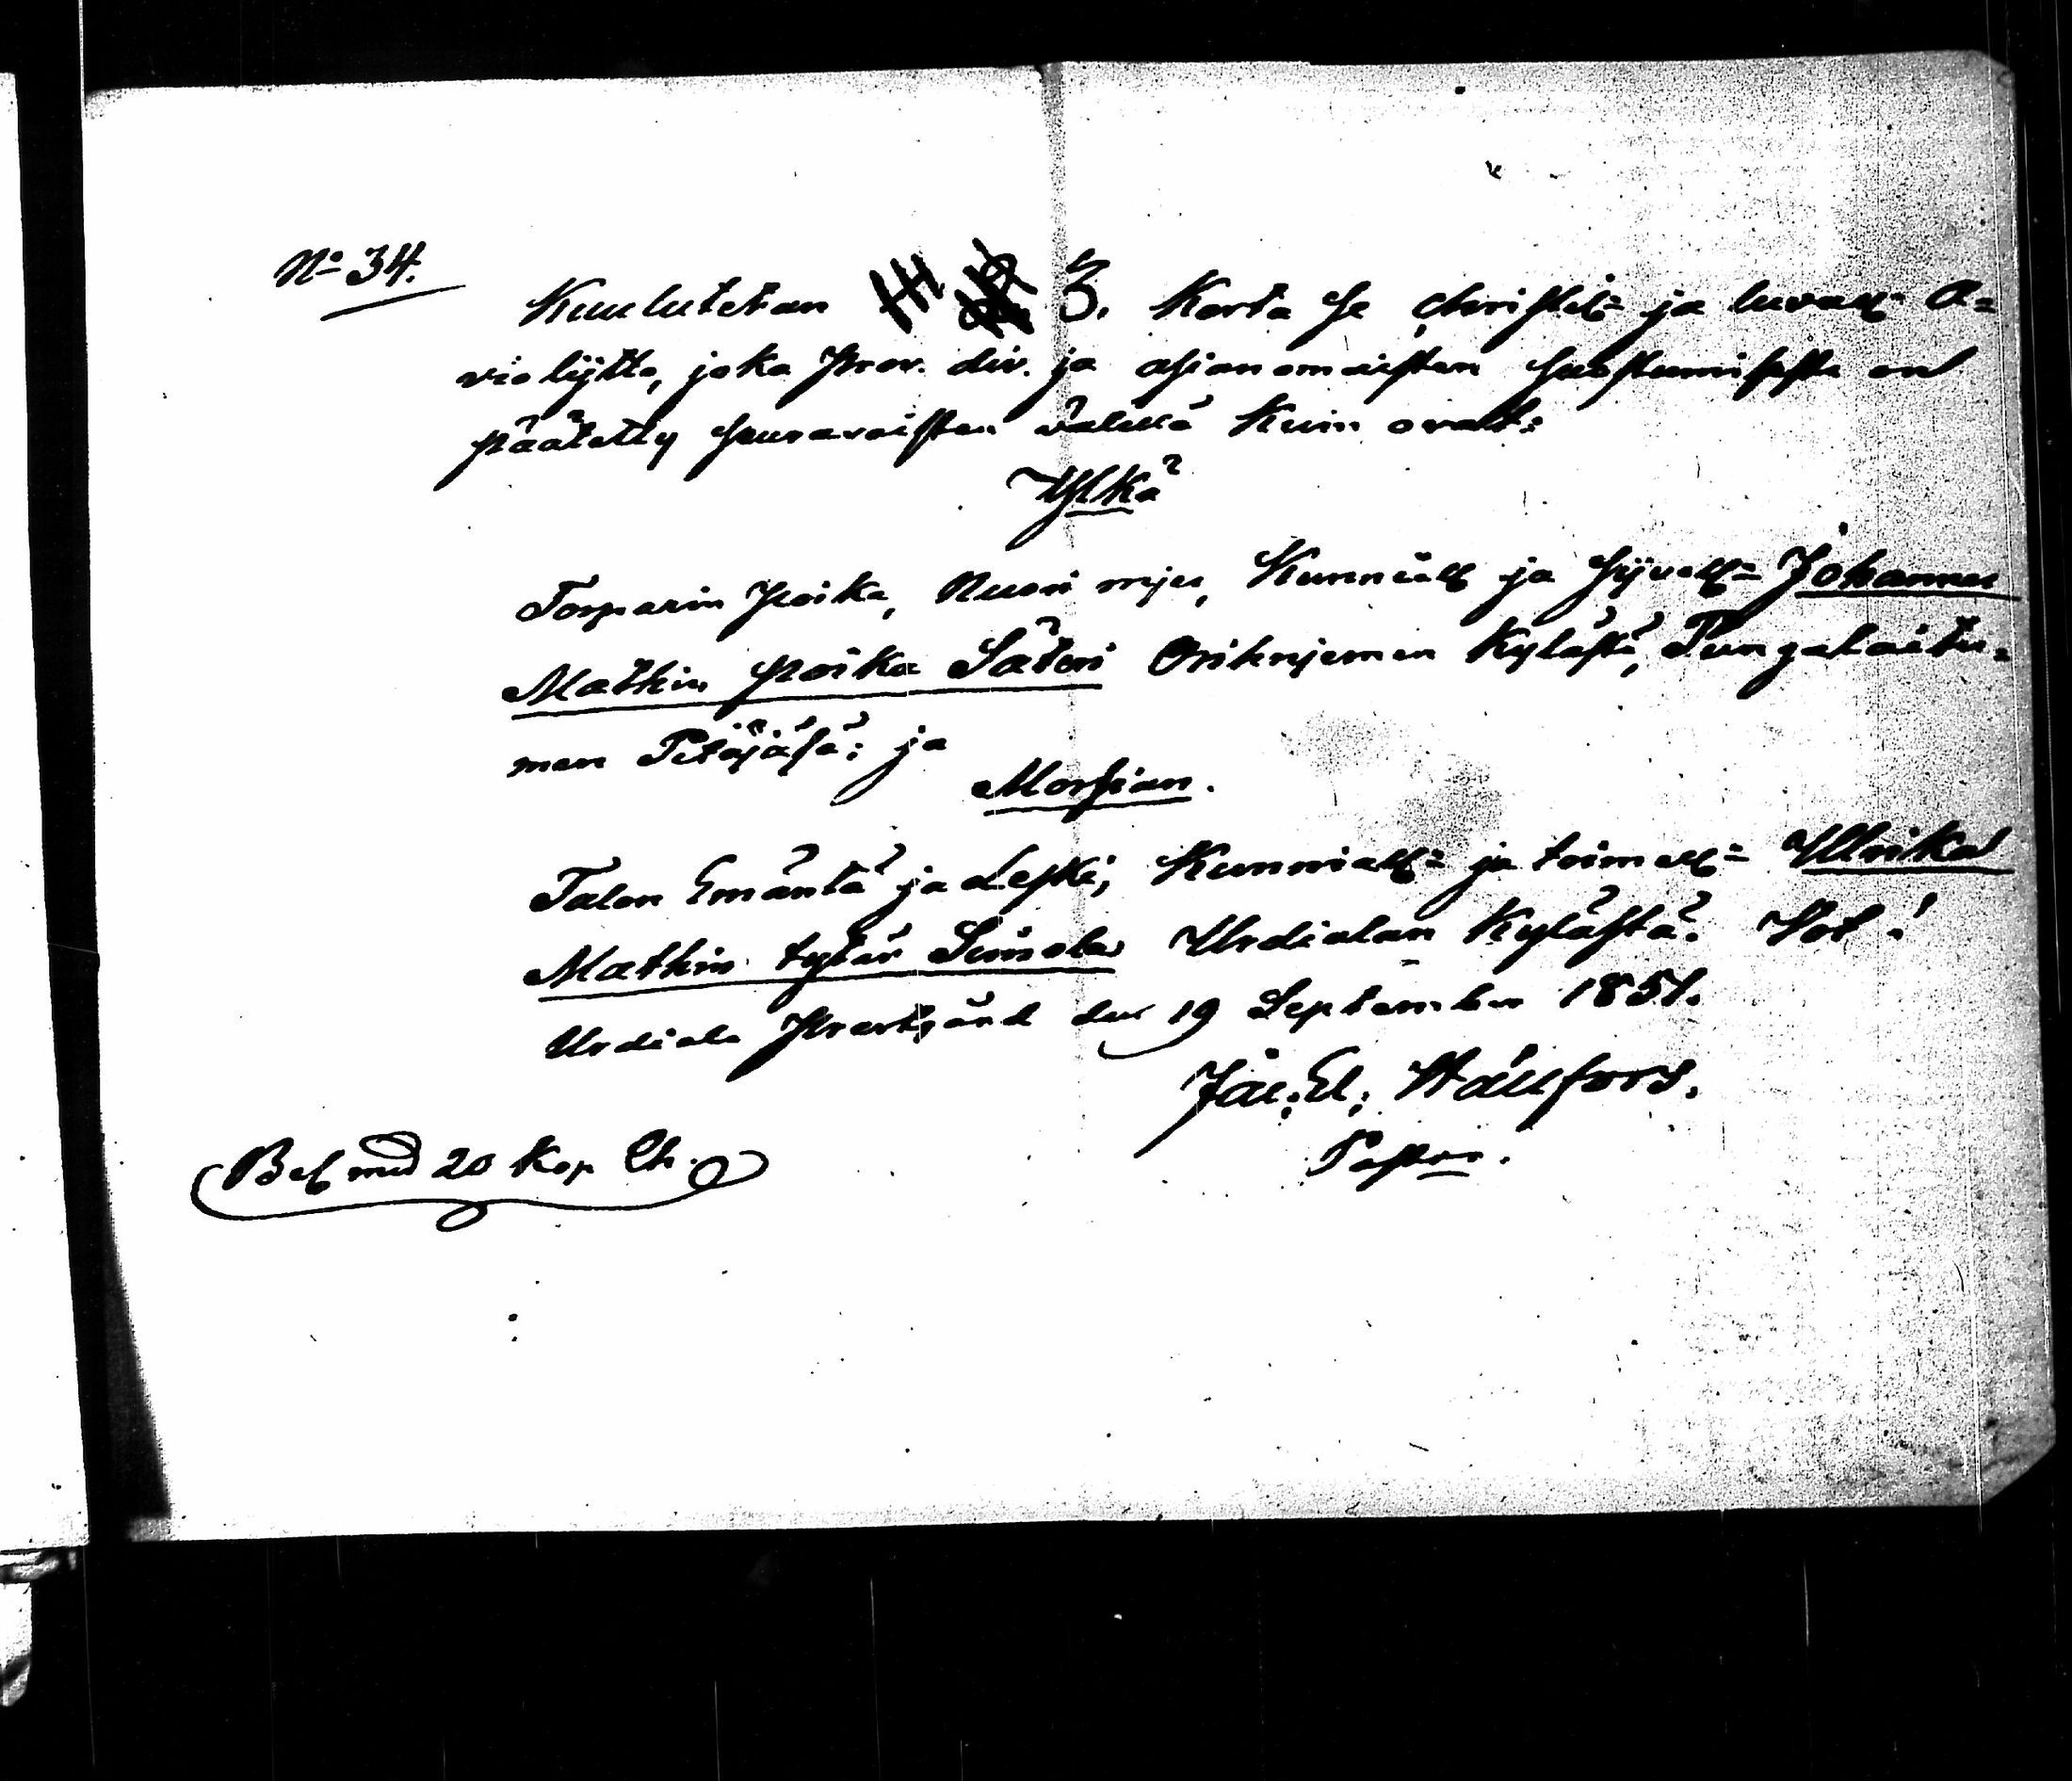 No 34.
Kuulutetan 3. Kerta se christel: ja luvall: A=
violijtto, joka Prov. div. ja asianomaisten suostumisesta on
päätetty seuravaisten välillä kuin ovat:
Ylkä
Torparin Poika, Nuori mies, Kunniall ja sijvoll: Johannes
Mathin poika Säteri Orihnjemen Kylästä, Pungalaitu=
men Petäjäsä; ja
Morsian.
Talon Emäntä ja Leski, Kunniall: ja toimell: Ulrika
Mathin tytär Simola Urdialan Kylästä.
Urdiala Prestgård den 19 September 1851.
Jac. Ed. Hällfors.
Pastor.
Bef med 20 Kop Ch.